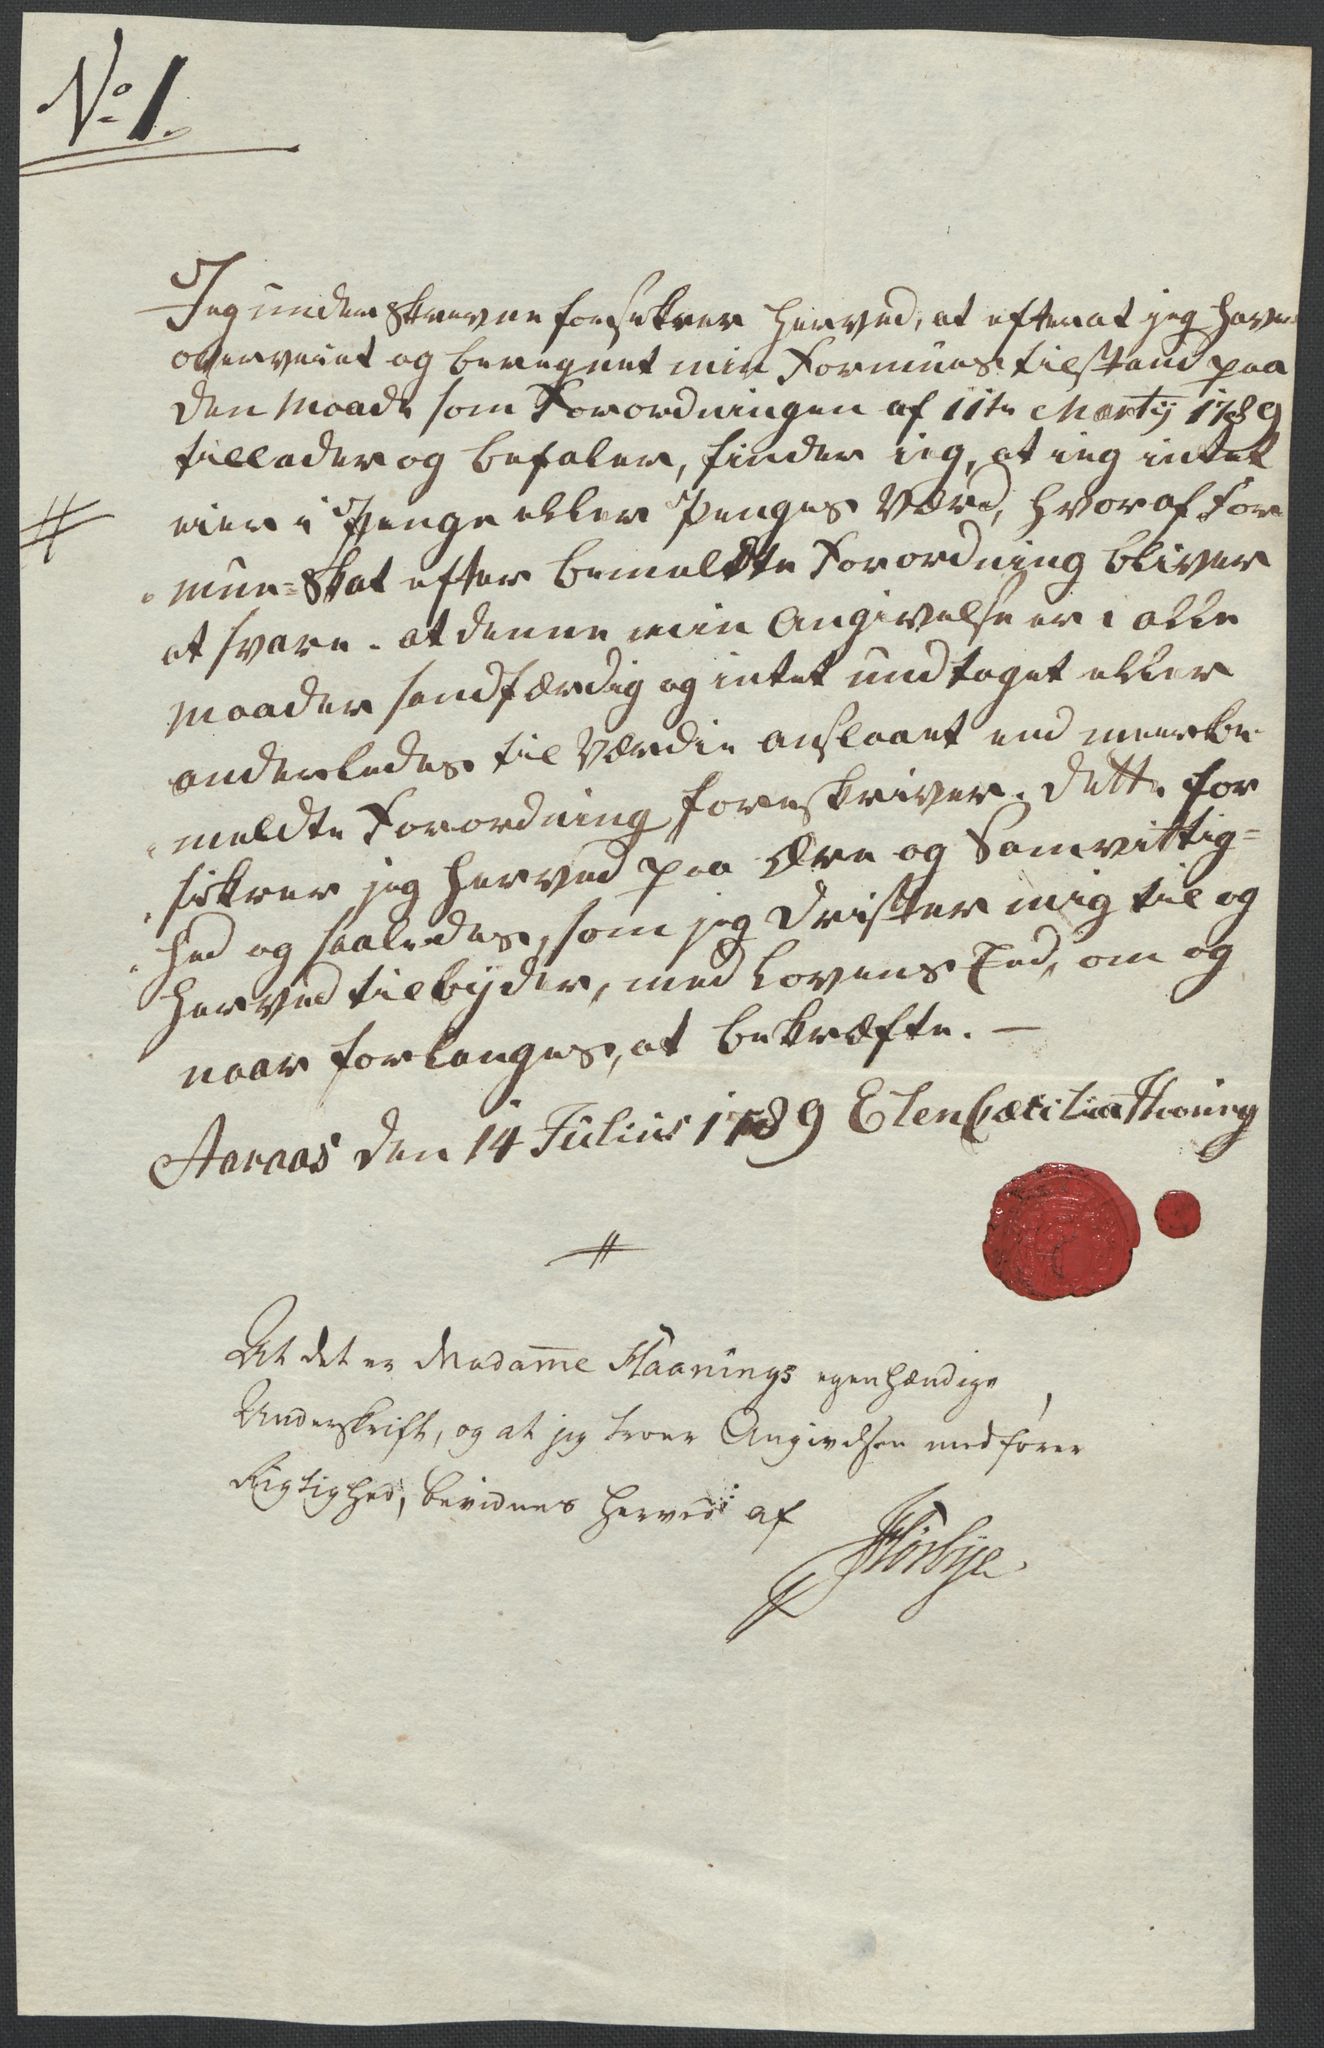 No 1.
Jeg underskrevne forsikrer herved, at efterat jeg haver
overveiet og beregnet min Formues tilstand paa
den Maade som Forordningen af 11te Martij 1789
tillader og befaler, finder jeg, at jeg intet
eier i Penge eller Penges Værd, hvoraf For
mue-Skat efter bemeldte Forordning bliver
at svare. at denne min Angivelse er i alle
Maader sandfærdig og intet undtaget eller
anderledes til Værdie anslaaet end meerbe-
meldte Forordning foreskriver. dette for
sikrer jeg herved paa Ære og Samvittig=
hed og saaledes, som jeg drister mig til og
herved tilbyder, med Lovens Eed, om og
naar forlanges, at bekræfte. —
Aaraas den 14 Julius 1789 Elen Cæcilia Haaning
At det er Madame Haanings egenhændige
Underskrift, og at jeg troer Angivelsen medfører
Rigtighed, bevidnes herved af